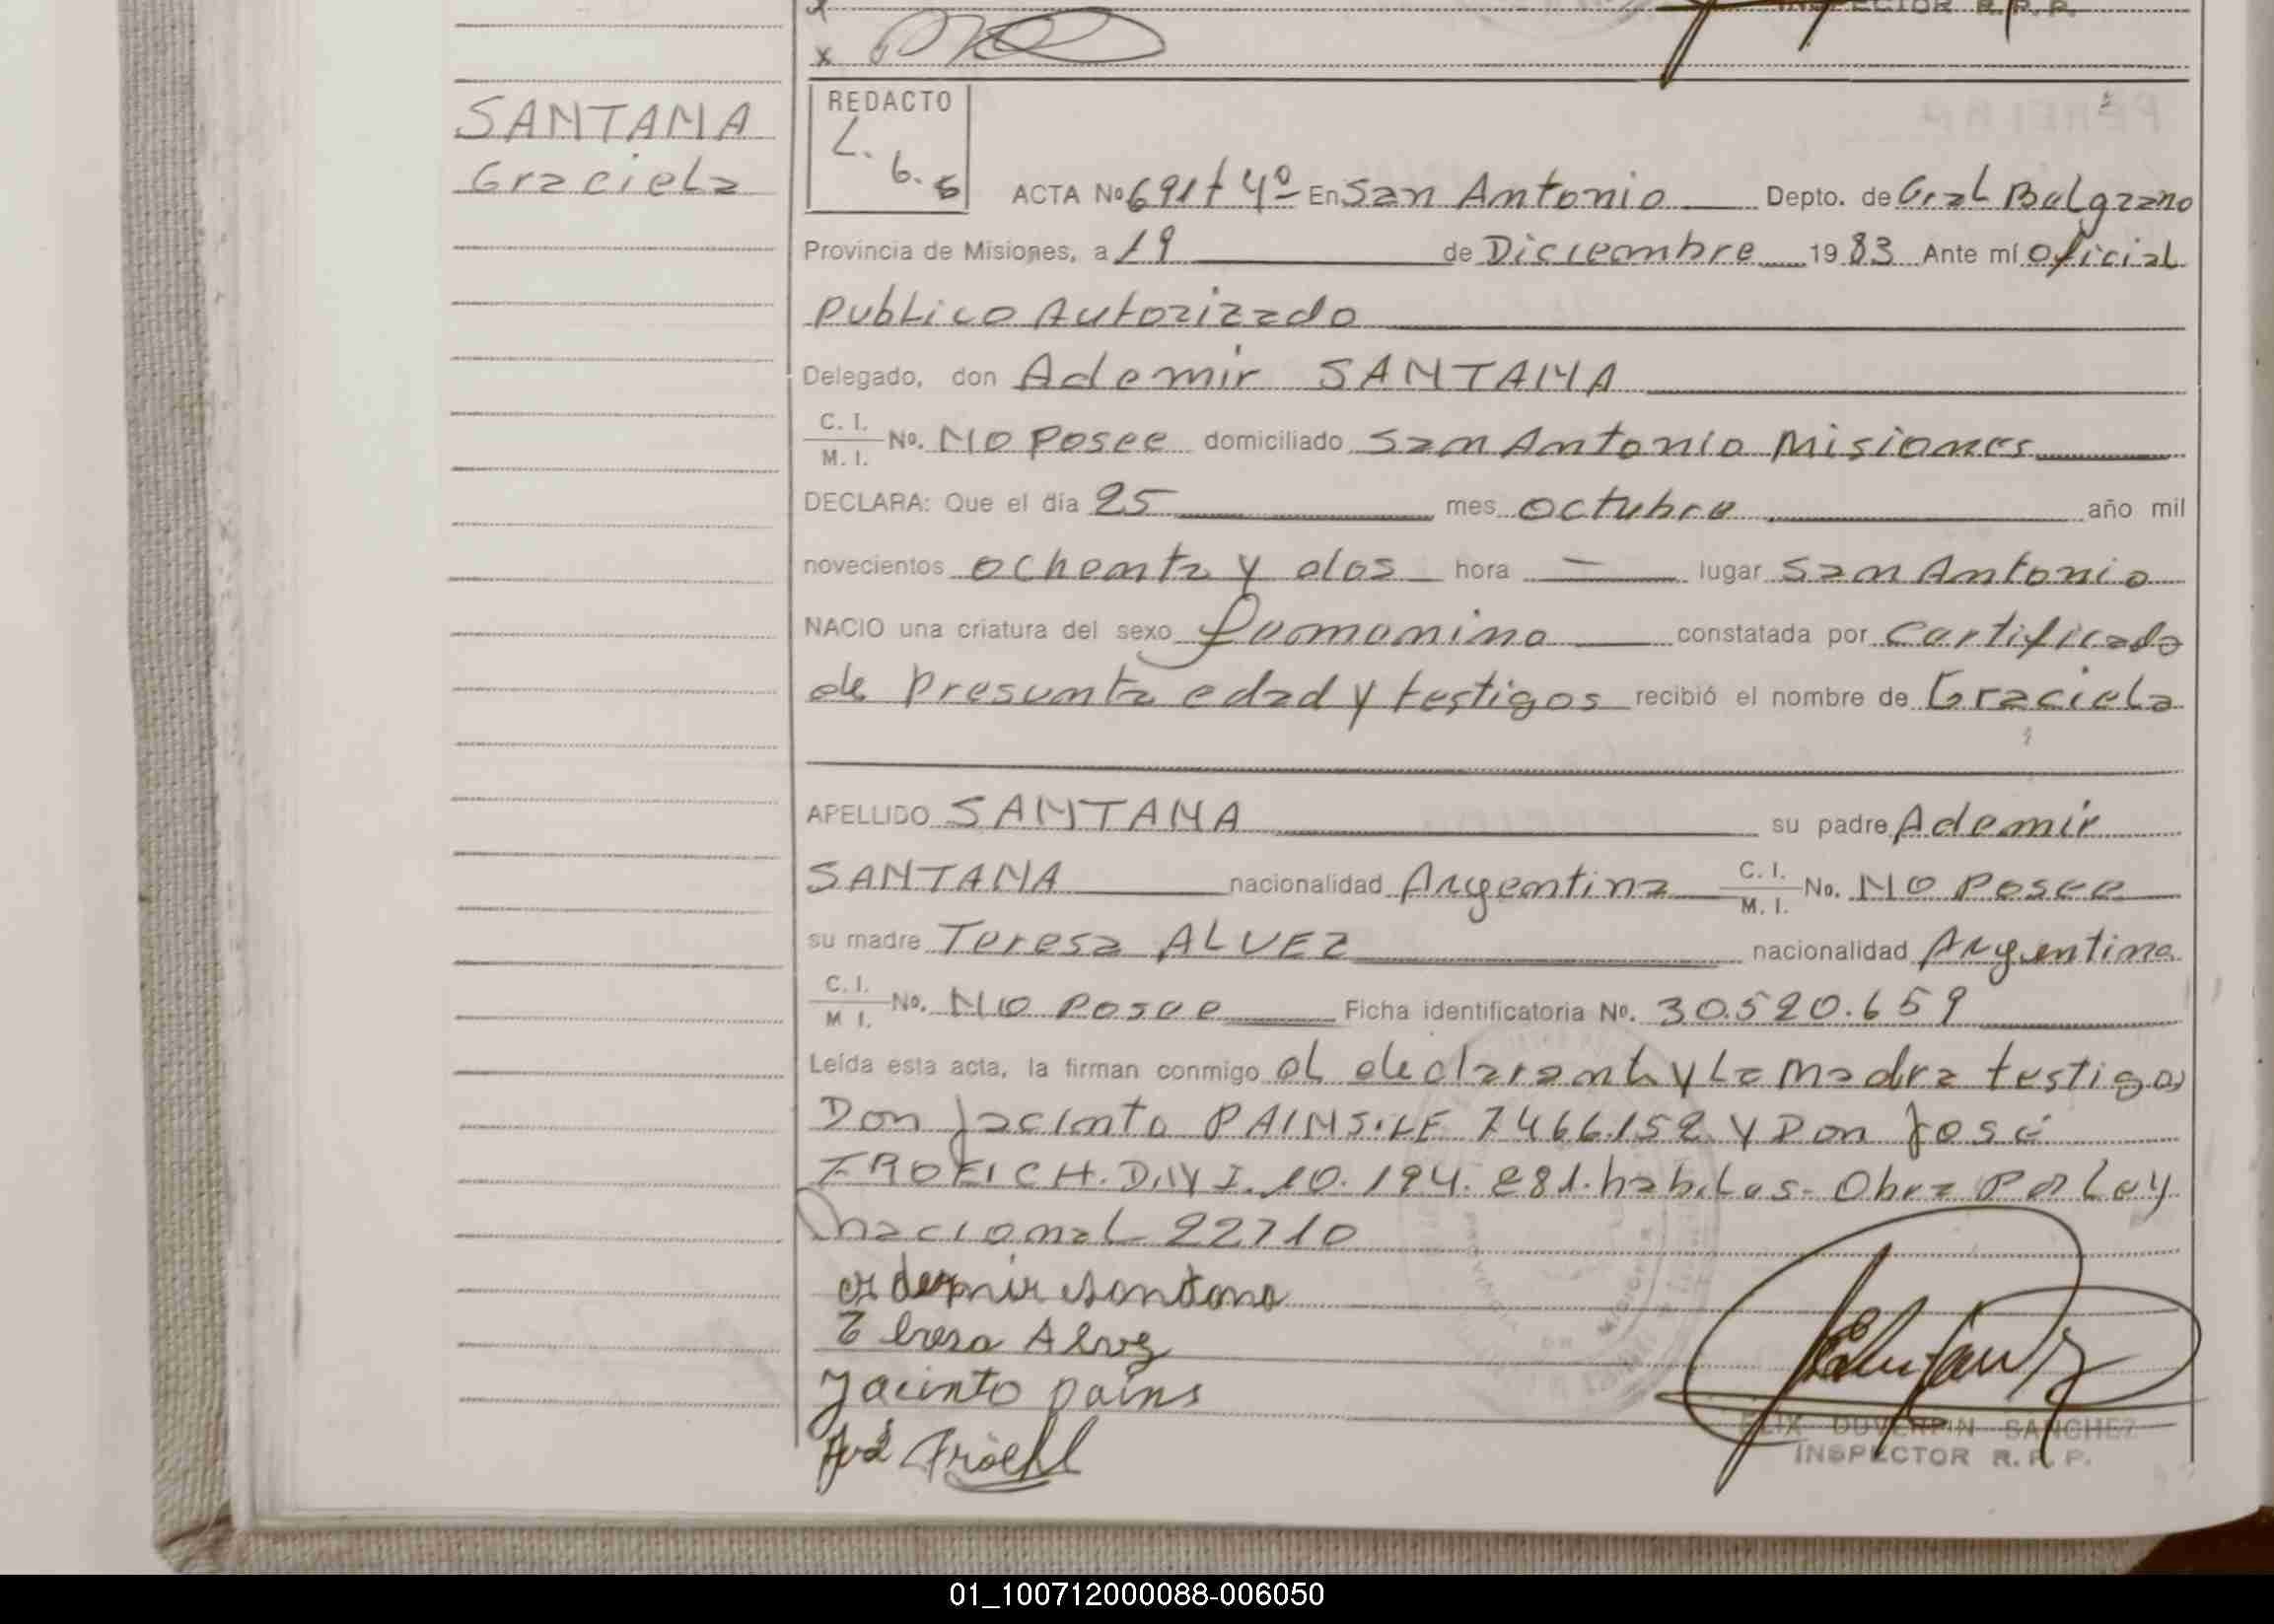 INSPECTOR R.P.P.
x
SANTANA
Graciela
REDACTO
L.
6.5
ACTA Nº 691 t 4º En San Antonio Depto. de Gral Belgrano
Provincia de Misiones, a 19 de Diciembre 1983 Ante mí oficial
Publico Autorizado
Delegado, don Ademir SANTANA
C. I.
M. I. Nº. No Posee domiciliado San Antonio Misiones
DECLARA: Que el día 25 mes octubre año mil
novecientos ochenta y dos hora — lugar San Antonio
NACIO una criatura del sexo femenino constatada por certificado
de Presunta edad y testigos recibió el nombre de Graciela
APELLIDO SANTANA su padre Ademir
SANTANA nacionalidad Argentina C. I. M. I. No. No Posee
su madre Teresa ALVEZ nacionalidad Argentina
C. I.
M I. Nº. No Posee Ficha identificatoria Nº. 30.520.659
Leída esta acta, la firman conmigo el declarante y La Madre testigos
Don Jacinto PAINS.LE 7466.152 y Don José
D.N I. 10.194.281. habiles. Obra Por Ley
nacional 22710
ademir santana
Teresa Alvez
Jacinto pains
FELIX DUVERPIN SANCHEZ
INSPECTOR R. P. P.
01_100712000088-006050